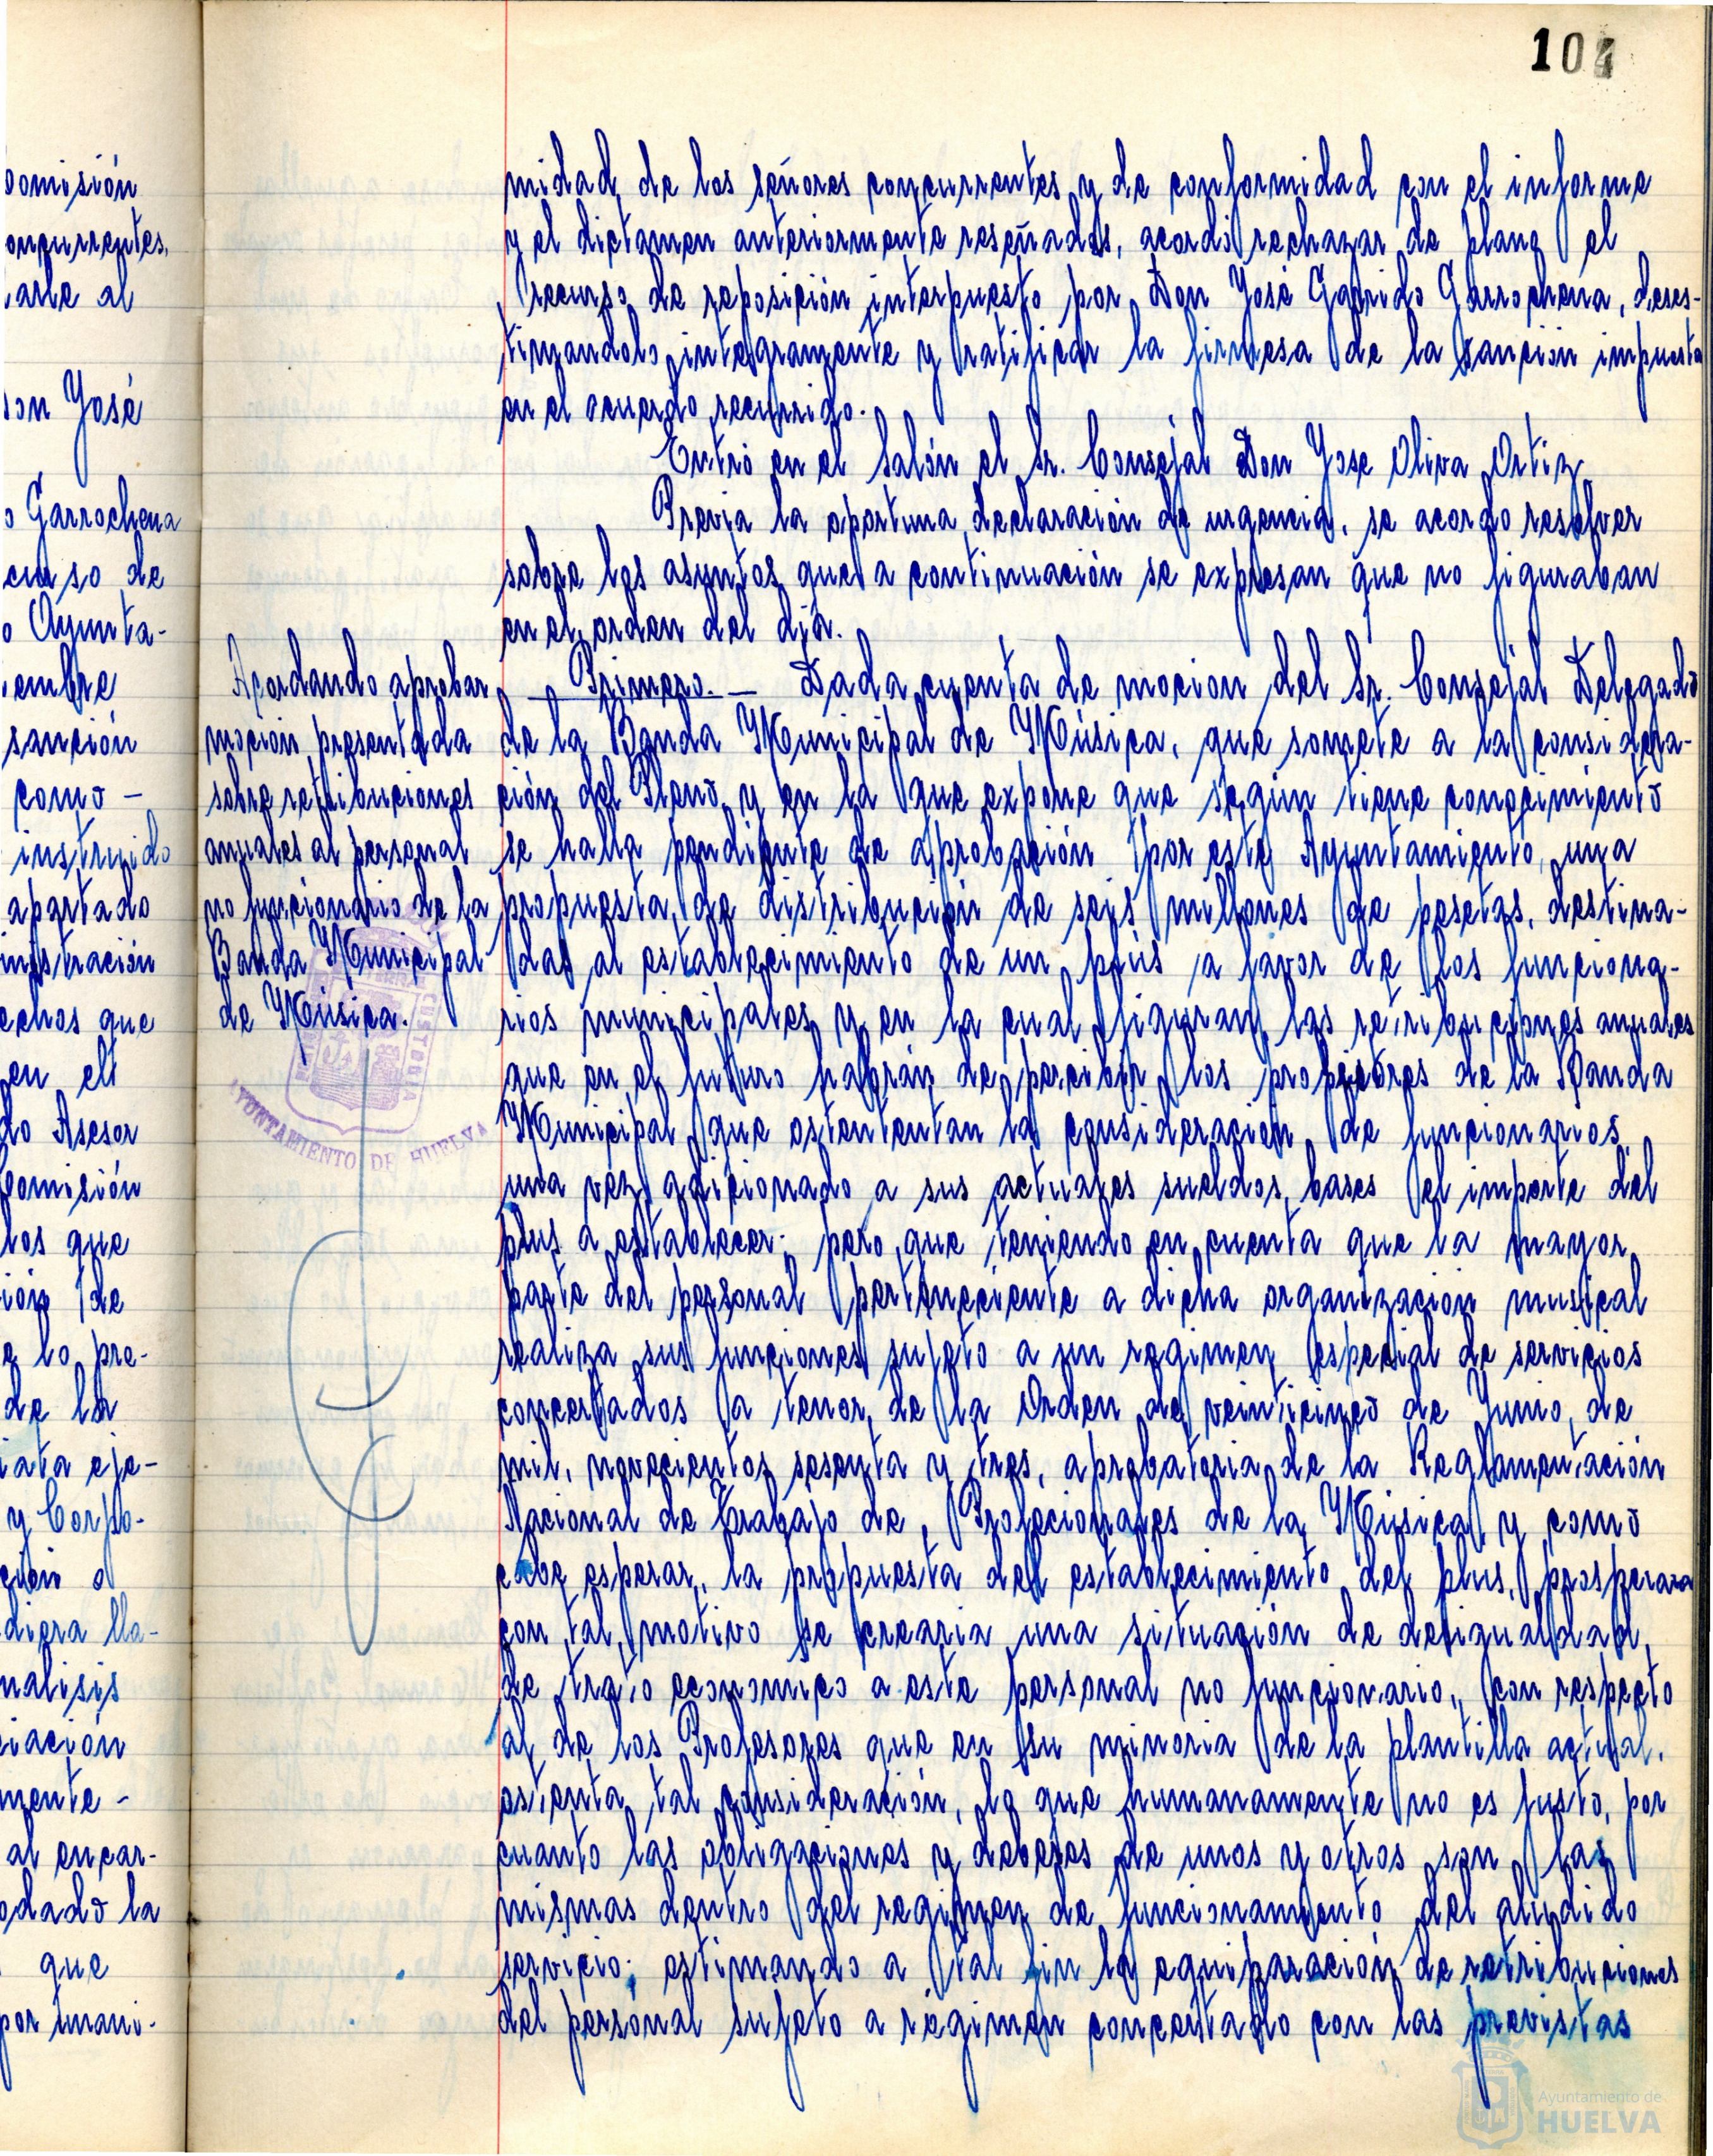 104
midad de los señores concurrentes y de conformidad con el informe
y el dictamen anteriormente reseñados, acordó rechazar de plano el
recurso de reposición interpuesto por Don José Garrido Garrochena, deses-
timandolo integramente y ratificar la firmesa de la sanción impuesta
en el acuerdo recurrido.
Entró en el Salón el Sr. Concejal Don Jose Oliva Ortiz.
Previa la oportuna declaración de urgencia, se acordo resolver
sobre los asuntos que a continuación se expresan que no figuraban
en el orden del dia.
Acordando aprobar
moción presentada
sobre retribuciones
anuales al personal
no funcionario de la
Banda Municipal
de Música.
— Primero. — Dada cuenta de mocion del Sr. Concejal Delegado
de la Banda Municipal de Música, que somete a la considera-
ción del Pleno y en la que expone que según tiene conocimiento
se halla pendiente de aprobación por este Ayuntamiento, una
propuesta de distribución de seis millones de pesetas, destina-
das al establecimiento de un plus a favor de los funciona-
rios municipales y en la cual figuran las retribuciones anuales
que en el futuro habrán de percibir los profesores de la Banda
Municipal que ostentan la consideración de funcionarios
una vez adicionado a sus actuales sueldos bases el importe del
plus a establecer; pero que teniendo en cuenta que la mayor
parte del personal perteneciente a dicha organizacion musical
realiza sus funciones sujeto a un regimen especial de servicios
concertados a tenor de la Orden de veinticinco de Junio de
mil, novecientos sesenta y tres, aprobatoria de la Reglamentación
Nacional de Trabajo de, Profecionales de la Música y como
cabe esperar, la propuesta del establecimiento del plus, prosperara
con tal motivo se crearia una situación de desigualdad
de trato economico a este personal no funcionario, con respecto
al de los Profesores que en su minoria de la plantilla actual,
ostenta tal consideración, lo que humanamente no es justo, por
cuanto las obligaciones y deberes de unos y otros son las
mismas dentro del regimen de funcionamiento del aludido
servicio; estimando a tal fin la equiparación de retribuciones
del personal sujeto a régimen concertado con las previstas
AYUNTAMIENTO DE HUELVA
omisión
oncurrentes,
arle al
on José
Garrochena
curso de
o Ayunta-
iembre
sanción
como -
instruido
apartado
inistración
echos que
en el
do Asesor
Comisión
los que
ión de
e lo pre-
de la
iata eje-
y Corpo-
diera lla-
nalisis
ciación
mente -
al encar-
odado la
que
Ayuntamiento de
HUELVA